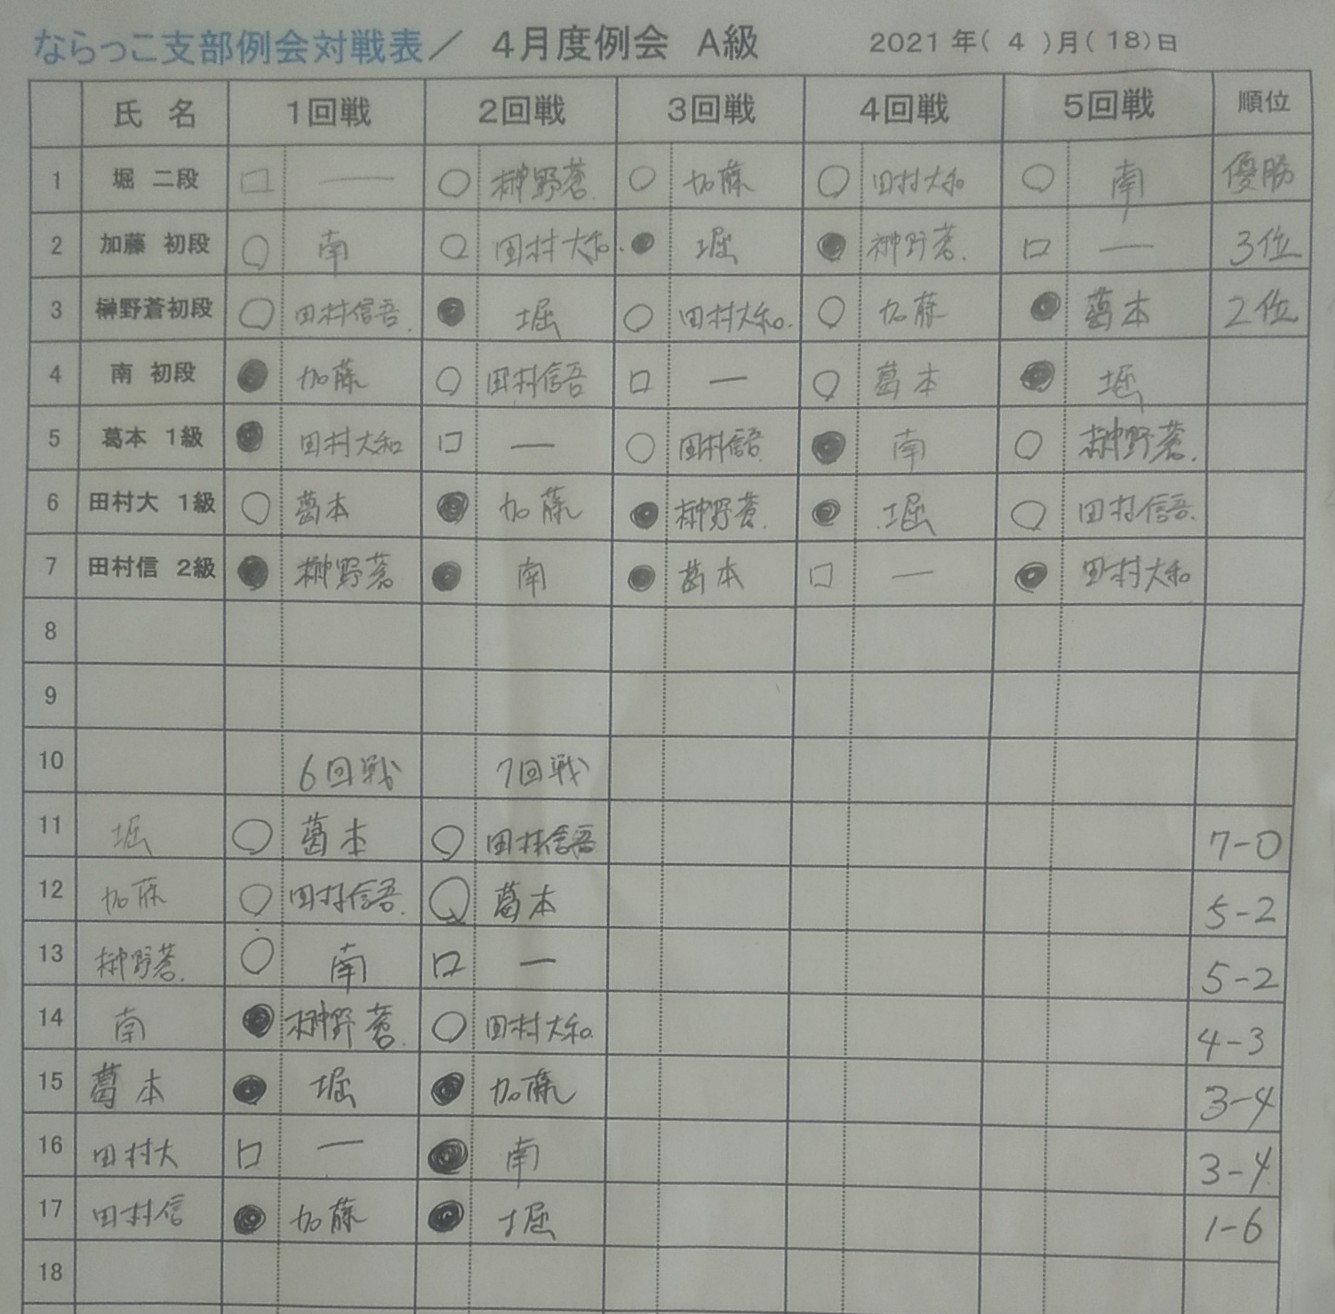 ならっこ支部例会対戦表／ 4月度例会 A級 2021年(4)月(18)日
氏名 1回戦 2回戦 3回戦 4回戦 5回戦 順位
1 堀 二段 □ — ○ 榊野蒼. ○ 加藤 ○ 田村大和 ○ 南 優勝
2 加藤 初段 ○ 南 ○ 田村大和. ● 堀 ● 榊野蒼. □ — 3位
3 榊野蒼初段 ○ 田村信吾. ● 堀 ○ 田村大和. ○ 加藤 ● 葛本 2位
4 南 初段 ● 加藤 ○ 田村信吾 □ — ○ 葛本 ● 堀
5 葛本 1級 ● 田村大和 □ — ○ 田村信吾. ● 南 ○ 榊野蒼.
6 田村大 1級 ○ 葛本 ● 加藤 ● 榊野蒼. ● 堀 ○ 田村信吾.
7 田村信 2級 ● 榊野蒼 ● 南 ● 葛本 □ — ● 田村大和
8
9
10 6回戦 7回戦
11 堀 ○ 葛本 ○ 田村信吾 7-0
12 加藤 ○ 田村信吾. ○ 葛本 5-2
13 榊野蒼. ○ 南 □ — 5-2
14 南 ● 榊野蒼. ○ 田村大和. 4-3
15 葛本 ● 堀 ● 加藤 3-4
16 田村大 □ — ● 南 3-4
17 田村信 ● 加藤 ● 堀 1-6
18